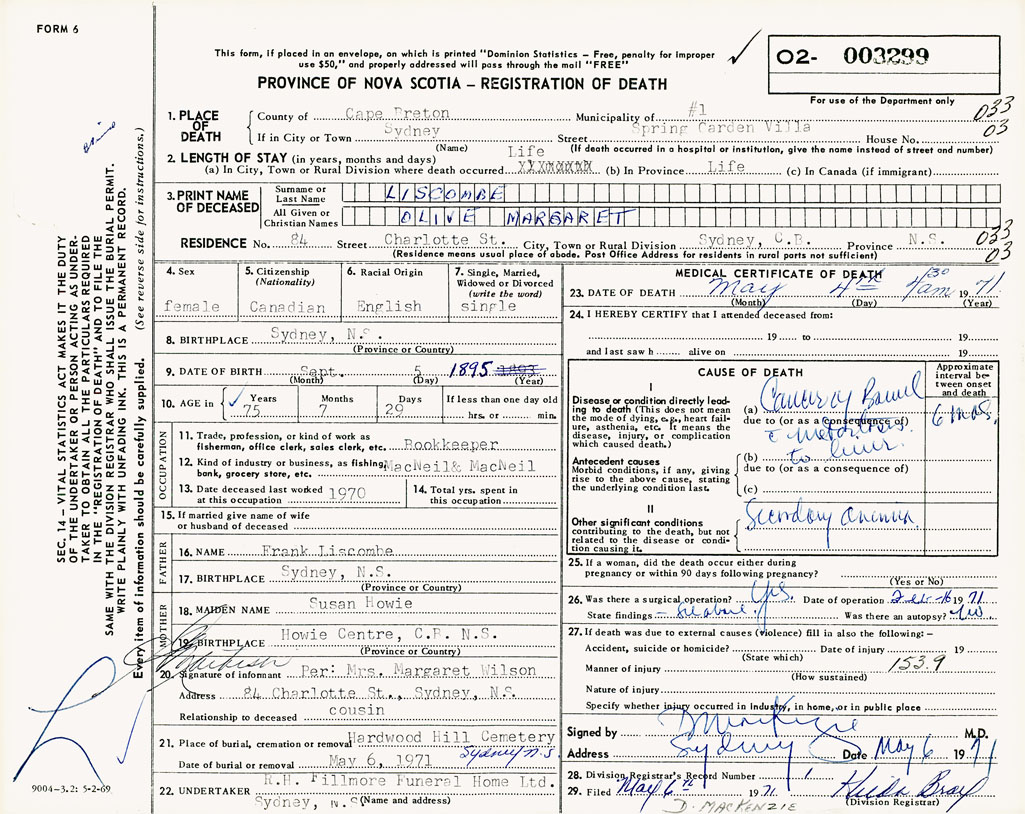 FORM 6
This form, if placed in an envelope, on which is printed "Dominion Statistics – Free, penalty for improper
use $50," and properly addressed will pass through the mail "FREE"
PROVINCE OF NOVA SCOTIA – REGISTRATION OF DEATH
02- 003299
For use of the Department only
1. PLACE OF DEATH
County of Cape Breton Municipality of #1 033
If in City or Town Sydney Street Spring Garden Villa House No. 03
(Name) (If death occurred in a hospital or institution, give the name instead of street and number)
2. LENGTH OF STAY (in years, months and days) Life
(a) In City, Town or Rural Division where death occurred XXXXXXXX (b) In Province Life (c) In Canada (if immigrant)
3. PRINT NAME OF DECEASED
Surname or Last Name LISCOMBE
All Given or Christian Names OLIVE MARGARET
RESIDENCE No. 84 Street Charlotte St. City, Town or Rural Division Sydney, C.B. Province N.S. 033 03
(Residence means usual place of abode. Post Office Address for residents in rural ports not sufficient)
4. Sex
female
5. Citizenship (Nationality)
Canadian
6. Racial Origin
English
7. Single, Married, Widowed or Divorced (write the word)
single
8. BIRTHPLACE Sydney, N.S.
(Province or Country)
9. DATE OF BIRTH Sept. 5 1895 1893
(Month) (Day) (Year)
10. AGE in Years 75 Months 7 Days 29 If less than one day old hrs. or min.
OCCUPATION
11. Trade, profession, or kind of work as fisherman, office clerk, sales clerk, etc. Bookkeeper
12. Kind of industry or business, as fishing, bank, grocery store, etc. MacNeil & MacNeil
13. Date deceased last worked at this occupation 1970
14. Total yrs. spent in this occupation
15. If married give name of wife or husband of deceased
FATHER
16. NAME Frank Liscombe
17. BIRTHPLACE Sydney, N.S.
(Province or Country)
MOTHER
18. MAIDEN NAME Susan Howie
19. BIRTHPLACE Howie Centre, C.B. N.S.
(Province or Country)
20. Signature of informant Per: Mrs. Margaret Wilson
Address 84 Charlotte St., Sydney, N.S.
Relationship to deceased cousin
21. Place of burial, cremation or removal Hardwood Hill Cemetery
Sydney N.S.
Date of burial or removal May 6, 1971
22. UNDERTAKER R.H. Fillmore Funeral Home Ltd.
Sydney, N.S. (Name and address)
MEDICAL CERTIFICATE OF DEATH
23. DATE OF DEATH May 4th 4 30 am 1971
(Month) (Day) (Year)
24. I HEREBY CERTIFY that I attended deceased from:
19 to 19
and last saw h alive on 19
CAUSE OF DEATH
Approximate interval between onset and death
I
Disease or condition directly leading to death (This does not mean the mode of dying, e.g., heart failure, asthenia, etc. It means the disease, injury, or complication which caused death.)
(a) Cancer of Bowel 6 mos.
due to (or as a consequence of)
c metastases
Antecedent causes
Morbid conditions, if any, giving rise to the above cause, stating the underlying condition last.
(b) to liver
due to (or as a consequence of)
(c)
II
Other significant conditions contributing to the death, but not related to the disease or condition causing it.
Secondary anemia
25. If a woman, did the death occur either during pregnancy or within 90 days following pregnancy?
(Yes or No)
26. Was there a surgical operation? Yes. Date of operation Feb 16 1971
State findings – See above. Was there an autopsy? No
27. If death was due to external causes (violence) fill in also the following: –
Accident, suicide or homicide? Date of injury 19
(State which)
Manner of injury 153.9
(How sustained)
Nature of injury
Specify whether injury occurred in industry, in home, or in public place
Signed by D MacKenzie M.D.
Address Sydney Date May 6 1971
28. Division Registrar's Record Number 1
29. Filed May 6th 1971
(Division Registrar)
D. MACKENZIE
SEC. 14 – VITAL STATISTICS ACT MAKES IT THE DUTY
OF THE UNDERTAKER OR PERSON ACTING AS UNDER-
TAKER TO OBTAIN ALL THE PARTICULARS REQUIRED
IN THE "REGISTRATION OF DEATH" AND TO FILE THE
SAME WITH THE DIVISION REGISTRAR WHO SHALL ISSUE THE BURIAL PERMIT.
WRITE PLAINLY WITH UNFADING INK. THIS IS A PERMANENT RECORD.
Every item of information should be carefully supplied. (See reverse side for instructions.)
9004-3.2: 5-2-69